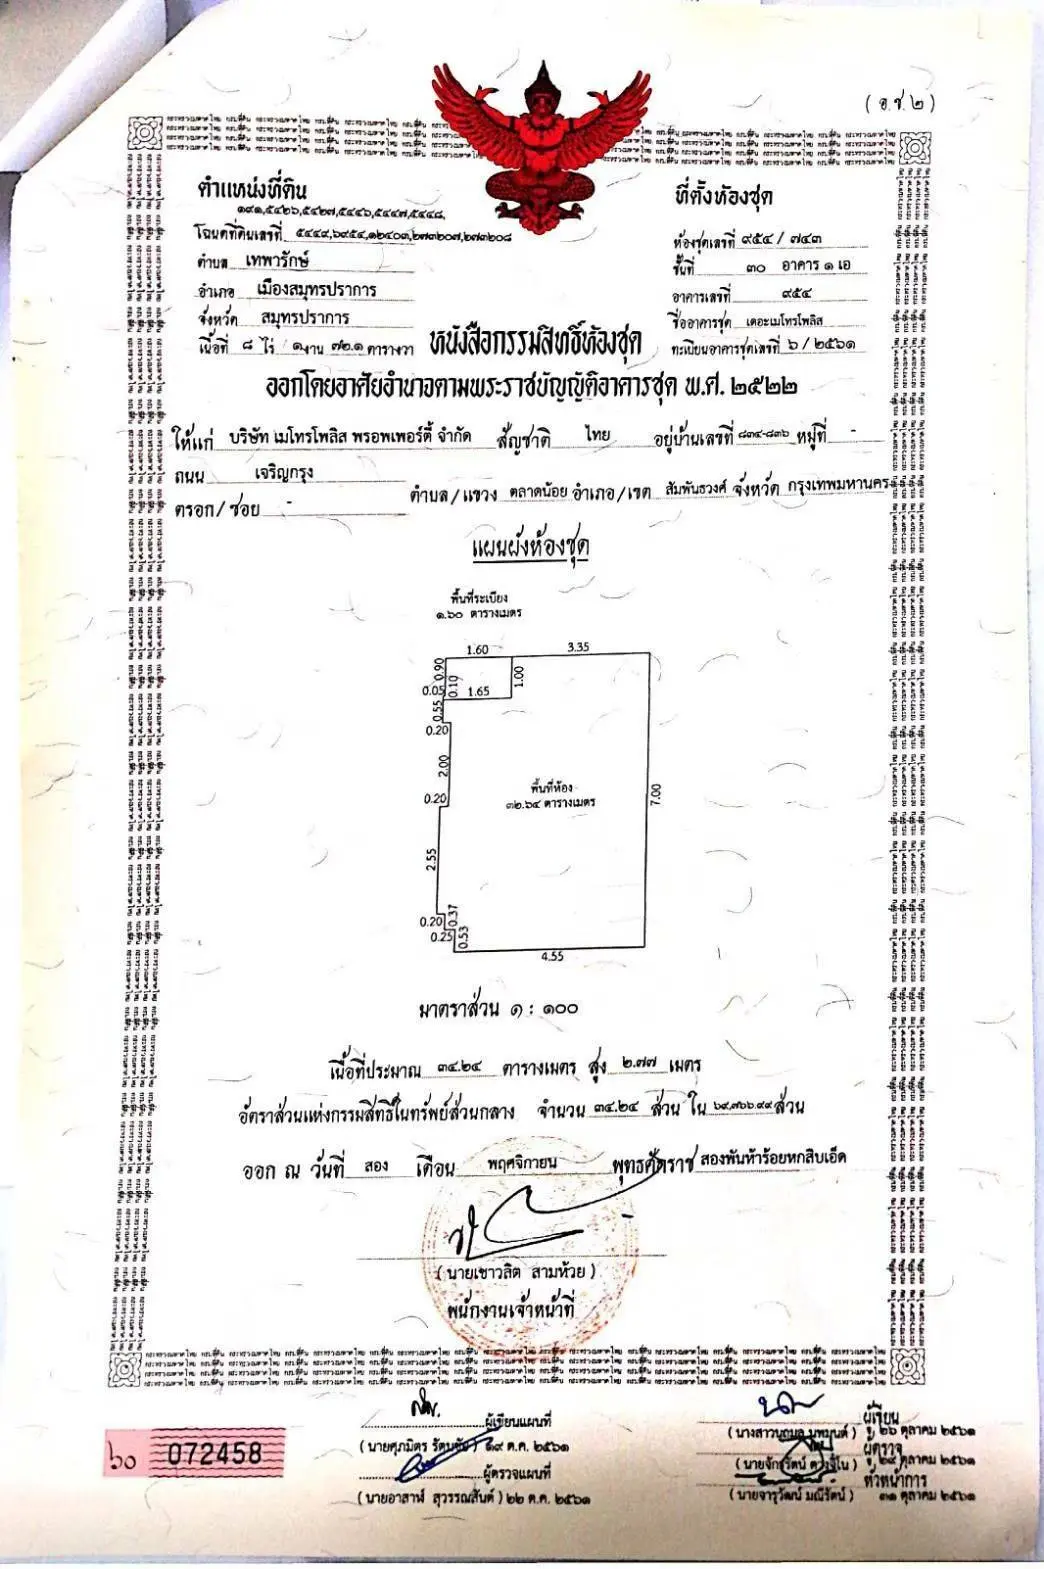 (อ.ช.๒)
ตำแหน่งที่ดิน
ที่ตั้งห้องชุด
๑๙๑,๕๔๒๖,๕๔๒๗,๕๔๔๖,๕๔๔๗,๕๔๔๘,
โฉนดที่ดินเลขที่ ๕๔๔๙,๖๙๕๔,๑๒๔๐๓,๒๗๓๒๐๗,๒๗๓๒๐๘
ห้องชุดเลขที่ ๙๕๔/๗๔๓
ตำบล เทพารักษ์
ชั้นที่ ๓๐ อาคาร ๑ เอ
อำเภอ เมืองสมุทรปราการ
อาคารเลขที่ ๙๕๔
จังหวัด สมุทรปราการ
ชื่ออาคารชุด เดอะเมโทรโพลิส
เนื้อที่ ๘ ไร่ ๑ งาน ๗๒.๑ ตารางวา
หนังสือกรรมสิทธิ์ห้องชุด
ทะเบียนอาคารชุดเลขที่ ๖/๒๕๖๑
ออกโดยอาศัยอำนาจตามพระราชบัญญัติอาคารชุด พ.ศ. ๒๕๒๒
ให้แก่ บริษัท เมโทรโพลิส พรอพเพอร์ตี้ จำกัด สัญชาติ ไทย อยู่บ้านเลขที่ ๘๓๔-๘๓๖ หมู่ที่ -
ถนน เจริญกรุง
ตรอก/ซอย - ตำบล/แขวง ตลาดน้อย อำเภอ/เขต สัมพันธวงศ์ จังหวัด กรุงเทพมหานคร
แผนผังห้องชุด
พื้นที่ระเบียง
๑.๖๐ ตารางเมตร
1.60
3.35
0.90
1.00
0.05
0.10
1.65
0.55
0.20
2.00
0.20
พื้นที่ห้อง
๓๒.๖๔ ตารางเมตร
7.00
2.55
0.20
0.37
0.25
0.53
4.55
มาตราส่วน ๑ : ๑๐๐
เนื้อที่ประมาณ ๓๔.๒๔ ตารางเมตร สูง ๒.๗๗ เมตร
อัตราส่วนแห่งกรรมสิทธิ์ในทรัพย์ส่วนกลาง จำนวน ๓๔.๒๔ ส่วน ใน ๖๙,๓๖๖.๙๙ ส่วน
ออก ณ วันที่ สอง เดือน พฤศจิกายน พุทธศักราช สองพันห้าร้อยหกสิบเอ็ด
(นายเชาวลิต สามห้วย)
พนักงานเจ้าหน้าที่
ผู้เขียนแผนที่
(นายศุภมิตร รัตน) ๑๙ ต.ค. ๒๕๖๑
ผู้ตรวจแผนที่
(นายอาสาฬ์ สุวรรณสันต์) ๒๒ ต.ค. ๒๕๖๑
ผู้เขียน
(นางสาว) ๒๖ ตุลาคม ๒๕๖๑
ผู้ตรวจ
(นายจักรวัตน์) ตุลาคม ๒๕๖๑
หัวหน้าการ
(นายจารุวัฒน์ มณีรัตน์) ๓๑ ตุลาคม ๒๕๖๑
๖๐ 072458